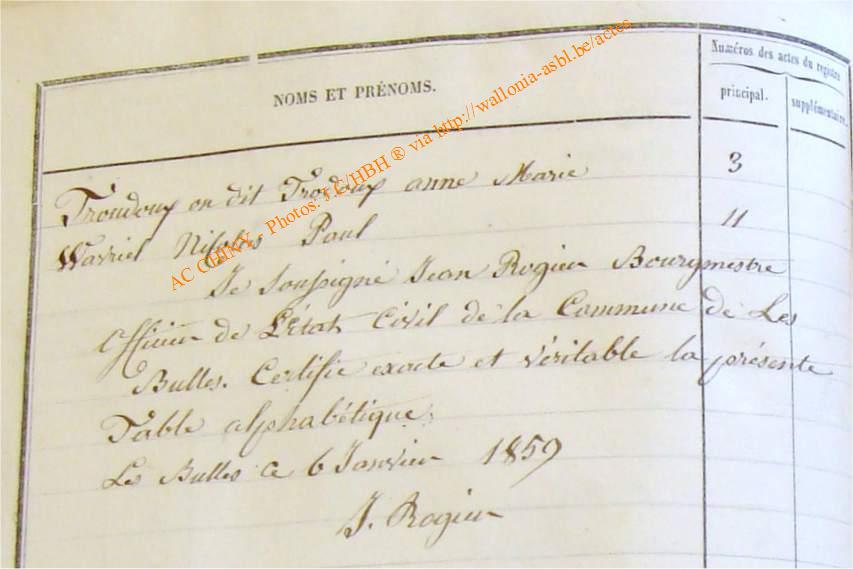 NOMS ET PRÉNOMS.
Numéros des actes du registre
principal.
supplémentaire.
Troudoux on dit Trodoux anne Marie 3
Wavriel Nicolas Paul 11
Je Soussigné Jean Rogier Bourgmestre
officier de L'État Civil de la Commune de Les
Bulles. Certifie exacte et véritable la présente
Table alphabétique.
Les Bulles ce 6 Janvier 1859
J. Rogier
AC CHINY - Photos: J.C/HBH ® via http://wallonia-asbl.be/actes